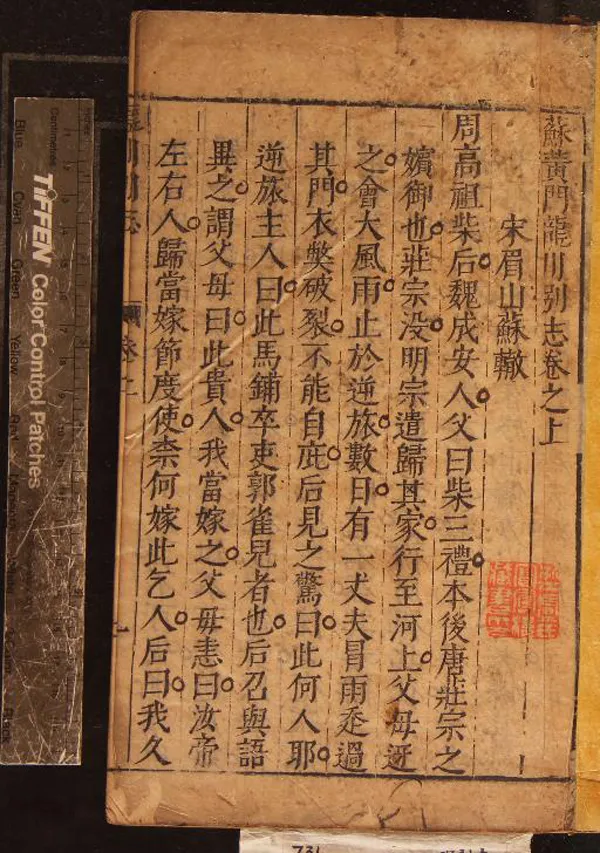 蘇黃門龍川別志卷之上
宋眉山蘇轍
周高祖柴后魏成安人父曰柴三禮本後唐莊宗之
嬪御也莊宗没明宗遣歸其家行至河上父母迓
之會大風雨止於逆旅數日有一丈夫冒雨走過
其門衣弊破裂不能自庇后見之驚曰此何人耶
逆旅主人曰此馬鋪卒吏郭雀兒者也后召與語
異之謂父母曰此貴人我當嫁之父母恚曰汝帝
左右人歸當嫁節度使柰何嫁此乞人后曰我久
TIFFEN Color Control Patches
Centimetres
Blue
Cyan
Green
Yellow
Red
Black
731